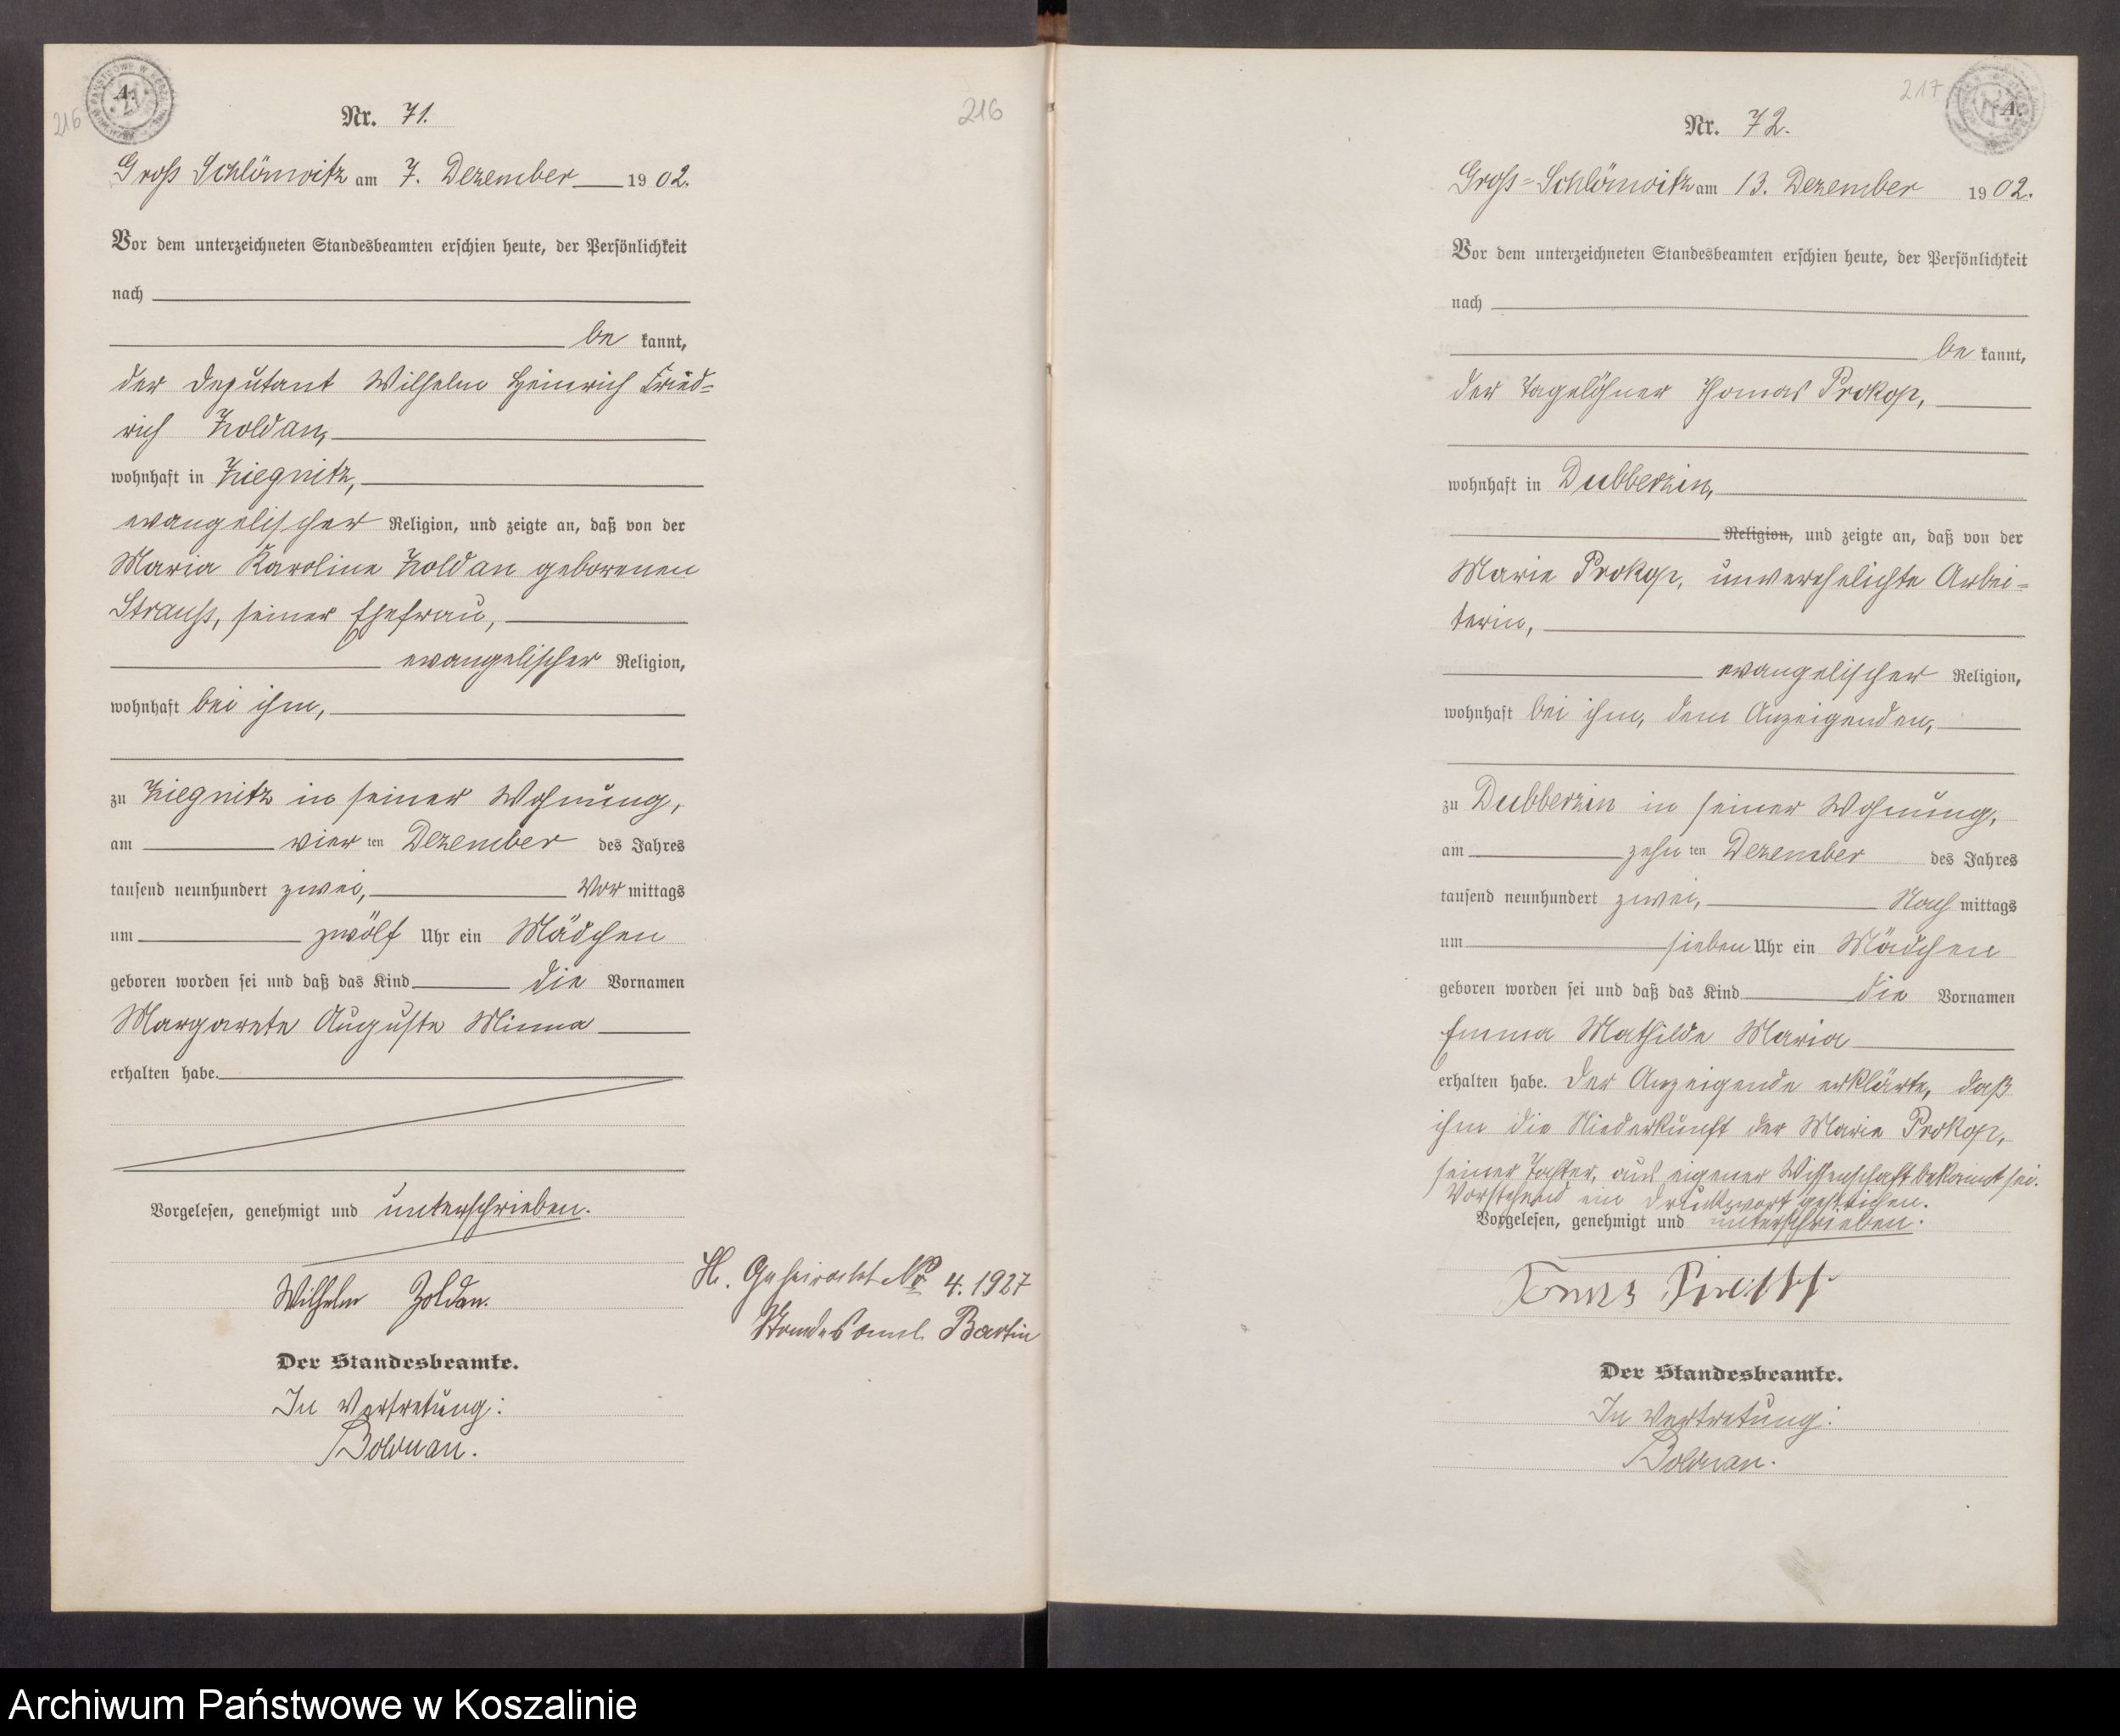 216
216
Nr. 71.
Gross Schlönwitz am 7. Dezember 1902.
Vor dem unterzeichneten Standesbeamten erschien heute, der Persönlichkeit
nach
be kannt,
der Deputant Wilhelm Heinrich Fried=
rich Zoldan,
wohnhaft in Ziegnitz,
evangelischer Religion, und zeigte an, daß von der
Maria Karoline Zoldan geborenen
Strauss, seiner Ehefrau,
evangelischer Religion,
wohnhaft bei ihm,
zu Ziegnitz in seiner Wohnung,
am vier ten Dezember des Jahres
tausend neunhundert zwei, Vor mittags
um zwölf Uhr ein Mädchen
geboren worden sei und daß das Kind die Vornamen
Margarete Auguste Minna
erhalten habe.
Vorgelesen, genehmigt und unterschrieben.
Wilhelm Zoldan.
Der Standesbeamte.
In Vertretung:
Bolduan.
Geheiratet No 4. 1927
Standesamt Bartin
217
Nr. 72.
Gross=Schlönwitz am 13. Dezember 1902.
Vor dem unterzeichneten Standesbeamten erschien heute, der Persönlichkeit
nach
be kannt,
der Tagelöhner Thomas Prokop,
wohnhaft in Dubberzin,
Religion, und zeigte an, daß von der
Marie Prokop, unverehelichte Arbei=
terin,
evangelischer Religion,
wohnhaft bei ihm, dem Anzeigenden,
zu Dubberzin in seiner Wohnung,
am zehn ten Dezember des Jahres
tausend neunhundert zwei, Nach mittags
um sieben Uhr ein Mädchen
geboren worden sei und daß das Kind die Vornamen
Emma Mathilde Maria
erhalten habe. Der Anzeigende erklärte, daß
ihm die Niederkunft der Marie Prokop,
seiner Tochter, aus eigener Wissenschaft bekannt sei.
Vorstehend ein Druckwort gestrichen.
Vorgelesen, genehmigt und unterschrieben.
Der Standesbeamte.
In Vertretung:
Bolduan.
Archiwum Państwowe w Koszalinie